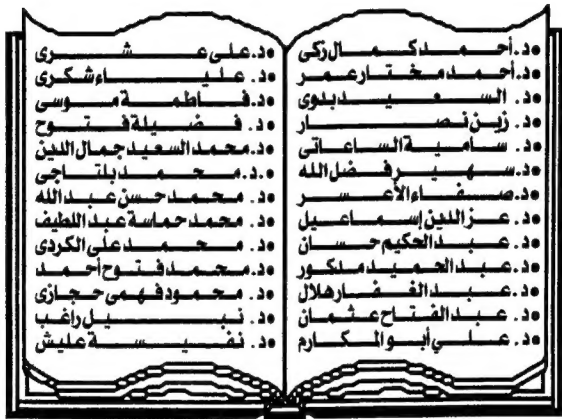 د. أحمد كمال زكى
د. أحمد مختار عمر
د. السعيد بدوى
د. زين نصار
د. سامية الساعاتى
د. سهير فضل الله
د. صفاء الأعسر
د. عز الدين إسماعيل
د. عبد الحكيم حسان
د. عبد الحميد مدكور
د. عبد الغفار هلال
د. عبد الفتاح عثمان
د. علي أبو المكارم
د. على عشرى
د. علياء شكرى
د. فاطمة موسى
د. فضيلة فتوح
د. محمد السعيد جمال الدين
د. محمد بلتاجى
د. محمد حسن عبد الله
د. محمد حماسة عبد اللطيف
د. محمد على الكردى
د. محمد فتوح أحمد
د. محمود فهمى حجازى
د. نبيل راغب
د. نفيسة عليش